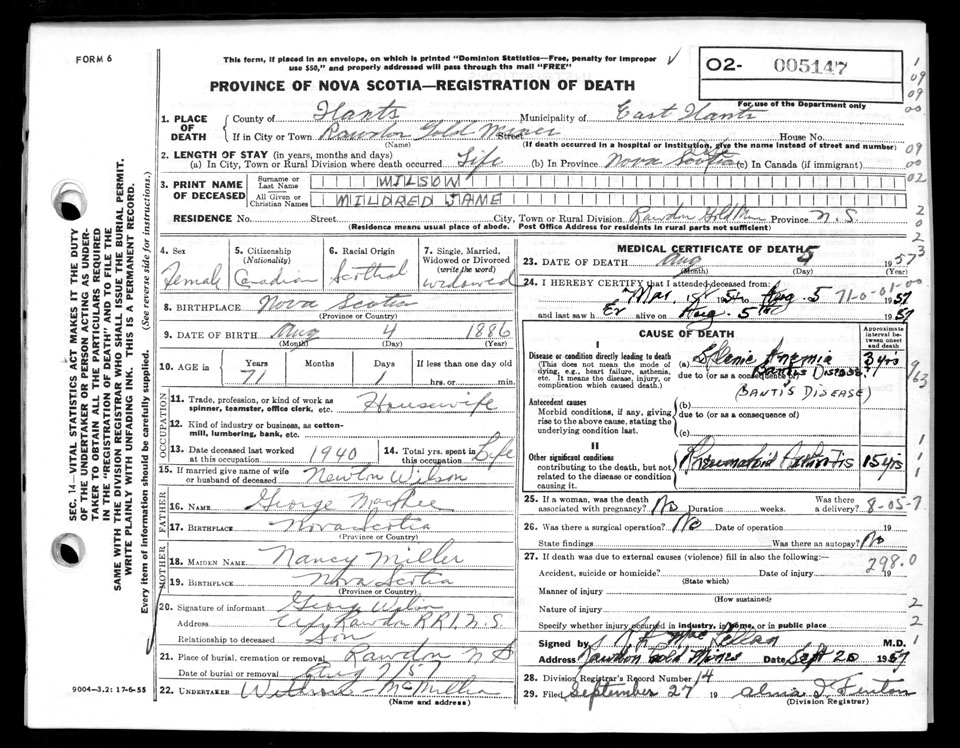 FORM 6
This form, if placed in an envelope, on which is printed "Dominion Statistics—Free, penalty for improper
use $50," and properly addressed will pass through the mail "FREE"
O2- 005147
PROVINCE OF NOVA SCOTIA—REGISTRATION OF DEATH
For use of the Department only
1. PLACE OF DEATH { County of Hants Municipality of East Hants
If in City or Town Rawdon Gold Mines Street House No.
(Name) (If death occurred in a hospital or institution, give the name instead of street and number)
2. LENGTH OF STAY (in years, months and days)
(a) In City, Town or Rural Division where death occurred Life (b) In Province Nova Scotia (c) In Canada (if immigrant)
3. PRINT NAME OF DECEASED { Surname or Last Name WILSON
All Given or Christian Names MILDRED JAME
RESIDENCE No. Street City, Town or Rural Division Rawdon Gold Mines Province N.S.
(Residence means usual place of abode. Post Office Address for residents in rural parts not sufficient)
4. Sex Female
5. Citizenship (Nationality) Canadian
6. Racial Origin
7. Single, Married, Widowed or Divorced (write the word) widowed
8. BIRTHPLACE Nova Scotia
(Province or Country)
9. DATE OF BIRTH Aug 4 1886
(Month) (Day) (Year)
10. AGE Years 71 Months Days 1 If less than one day old
hrs. or min.
OCCUPATION
11. Trade, profession, or kind of work as spinner, teamster, office clerk, etc. Housewife
12. Kind of industry or business, as cotton-mill, lumbering, bank, etc.
13. Date deceased last worked at this occupation 1940
14. Total yrs. spent in this occupation Life
15. If married give name of wife or husband of deceased Newton Wilson
FATHER
16. NAME George MacPhee
17. BIRTHPLACE Nova Scotia
(Province or Country)
MOTHER
18. MAIDEN NAME Nancy Miller
19. BIRTHPLACE Nova Scotia
(Province or Country)
20. Signature of informant George Wilson
Address Rawdon RR1. N.S.
Relationship to deceased Son
21. Place of burial, cremation or removal Rawdon N S
Date of burial or removal Aug 7/57
22. UNDERTAKER
(Name and address)
9004-3.2: 17-6-55
MEDICAL CERTIFICATE OF DEATH
23. DATE OF DEATH Aug 5 1957
(Month) (Day) (Year)
24. I HEREBY CERTIFY that I attended deceased from:
Mar. 1954 to Aug. 5 1957
71-0-01-00
and last saw h Er alive on Aug. 5th 1957
CAUSE OF DEATH
Approximate interval between onset and death
I
Disease or condition directly leading to death
(This does not mean the mode of dying, e.g., heart failure, asthenia, etc. It means the disease, injury, or complication which caused death.)
(a) Splenic Anemia 3 yrs
due to (or as a consequence of) Bantis Disease?
(BANTI'S DISEASE)
Antecedent causes
Morbid conditions, if any, giving rise to the above cause, stating the underlying condition last.
(b)
due to (or as a consequence of)
(c)
II
Other significant conditions
contributing to the death, but not related to the disease or condition causing it.
Rheumatoid Arthritis 15 yrs
25. If a woman, was the death associated with pregnancy? No Duration weeks. Was there a delivery?
8-05-7
26. Was there a surgical operation? No Date of operation 19
State findings Was there an autopsy? No
27. If death was due to external causes (violence) fill in also the following:—
298.0
Accident, suicide or homicide? Date of injury 19
(State which)
Manner of injury
(How sustained)
Nature of injury
Specify whether injury occurred in industry, in home, or in public place
Signed by MacLellan M.D.
Address Rawdon Gold Mines Date Sept 20 1957
28. Division Registrar's Record Number 14
29. Filed September 27 19 Alma I. Fenton
(Division Registrar)
SEC. 14—VITAL STATISTICS ACT MAKES IT THE DUTY
OF THE UNDERTAKER OR PERSON ACTING AS UNDER-
TAKER TO OBTAIN ALL THE PARTICULARS REQUIRED
IN THE "REGISTRATION OF DEATH" AND TO FILE THE
SAME WITH THE DIVISION REGISTRAR WHO SHALL ISSUE THE BURIAL PERMIT.
WRITE PLAINLY WITH UNFADING INK. THIS IS A PERMANENT RECORD.
Every item of information should be carefully supplied. (See reverse side for instructions.)
1
09
09
00
09
00
02
2
0
2
3
9/63
1
1
1
2
2
1